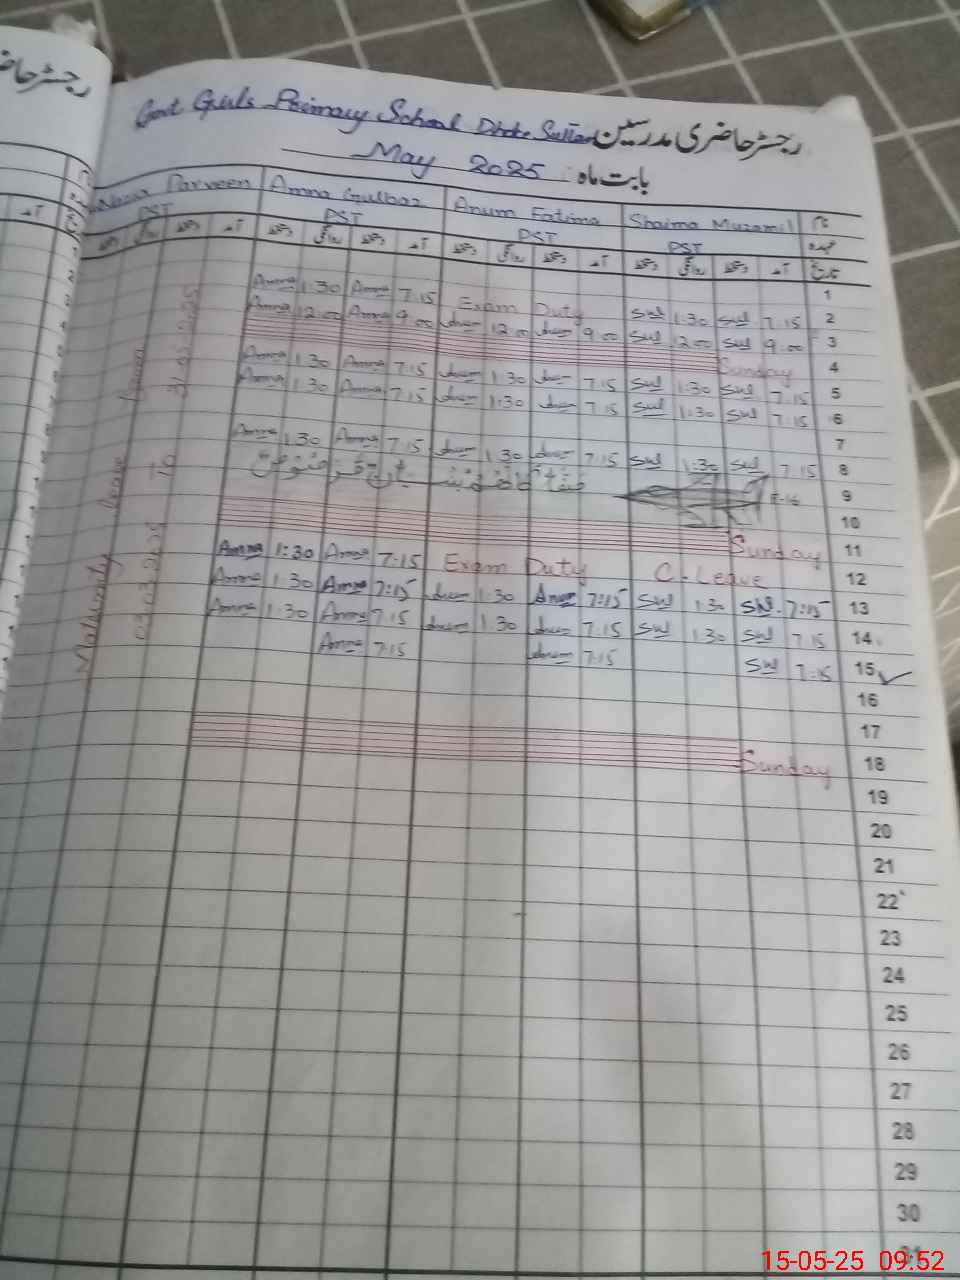 رجسٹر حاضری مدرسین
Govt Girls Primary School Dhoke Sultan
بابت ماہ : May 2025
نام Shaima Muzamil Anum Fatima Amna Gulbaz Nazia Parveen
عہدہ PST PST PST PST
تاریخ آمد دستخط روانگی دستخط آمد دستخط روانگی دستخط آمد دستخط روانگی دستخط آمد دستخط روانگی دستخط
1
Amna 1:30 Amna 7:15 Exam Duty SM 1:30 SM 7:15 2
Amna 12:00 Amna 9:00 Anum 12:00 Anum 9:00 SM 12:00 SM 9:00 3
Sunday 4
Amna 1:30 Amna 7:15 Anum 1:30 Anum 7:15 SM 1:30 SM 7:15 5
Amna 1:30 Amna 7:15 Anum 1:30 Anum 7:15 SM 1:30 SM 7:15 6
7
Amna 1:30 Amna 7:15 Anum 1:30 Anum 7:15 SM 1:30 SM 7:15 8
9
10
Sunday 11
Amna 1:30 Amna 7:15 Exam Duty C-Leave 12
Amna 1:30 Amna 7:15 Anum 1:30 Anum 7:15 SM 1:30 SM 7:15 13
Amna 1:30 Amna 7:15 Anum 1:30 Anum 7:15 SM 1:30 SM 7:15 14
Amna 7:15 Anum 7:15 SM 7:15 15
16
17
Sunday 18
19
20
21
22
23
24
25
26
27
28
29
30
31
Maternity leave from
03.03.2025 to
رجسٹر حاضر
15-05-25 09:52